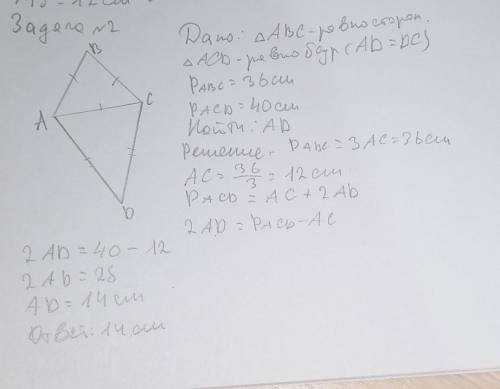 Задача №2
B
C
A
D
Дано: △ABC - равносторон.
△ACD - равнобедр (AD = DC)
PABC = 36см
PACD = 40см
Найти: AD
Решение. PABC = 3AC = 36см
AC = 36/3 = 12см
PACD = AC + 2AD
2AD = PACD - AC
2AD = 40 - 12
2AD = 28
AD = 14см
Ответ: 14см